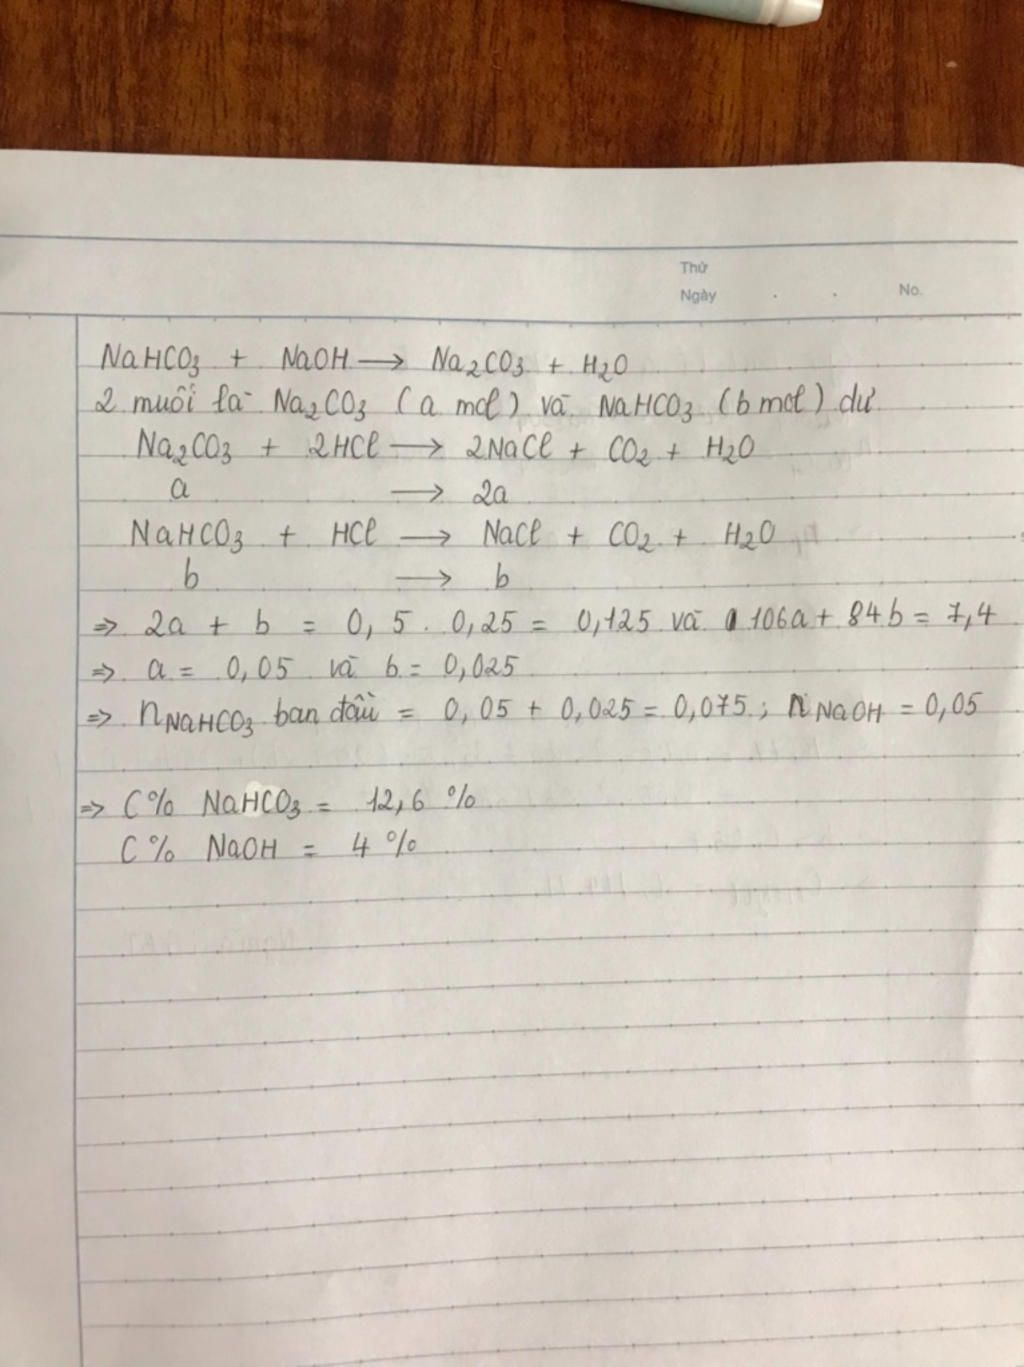 Thứ
Ngày . . No.
NaHCO3 + NaOH → Na2CO3 + H2O
2 muối là Na2CO3 (a mol) và NaHCO3 (b mol) dư
Na2CO3 + 2HCl → 2NaCl + CO2 + H2O
a → 2a
NaHCO3 + HCl → NaCl + CO2 + H2O
b → b
⇒ 2a + b = 0,5 . 0,25 = 0,125 và 106a + 84b = 7,4
⇒ a = 0,05 và b = 0,025
⇒ nNaHCO3 ban đầu = 0,05 + 0,025 = 0,075 ; nNaOH = 0,05
⇒ C% NaHCO3 = 12,6 %
C% NaOH = 4 %